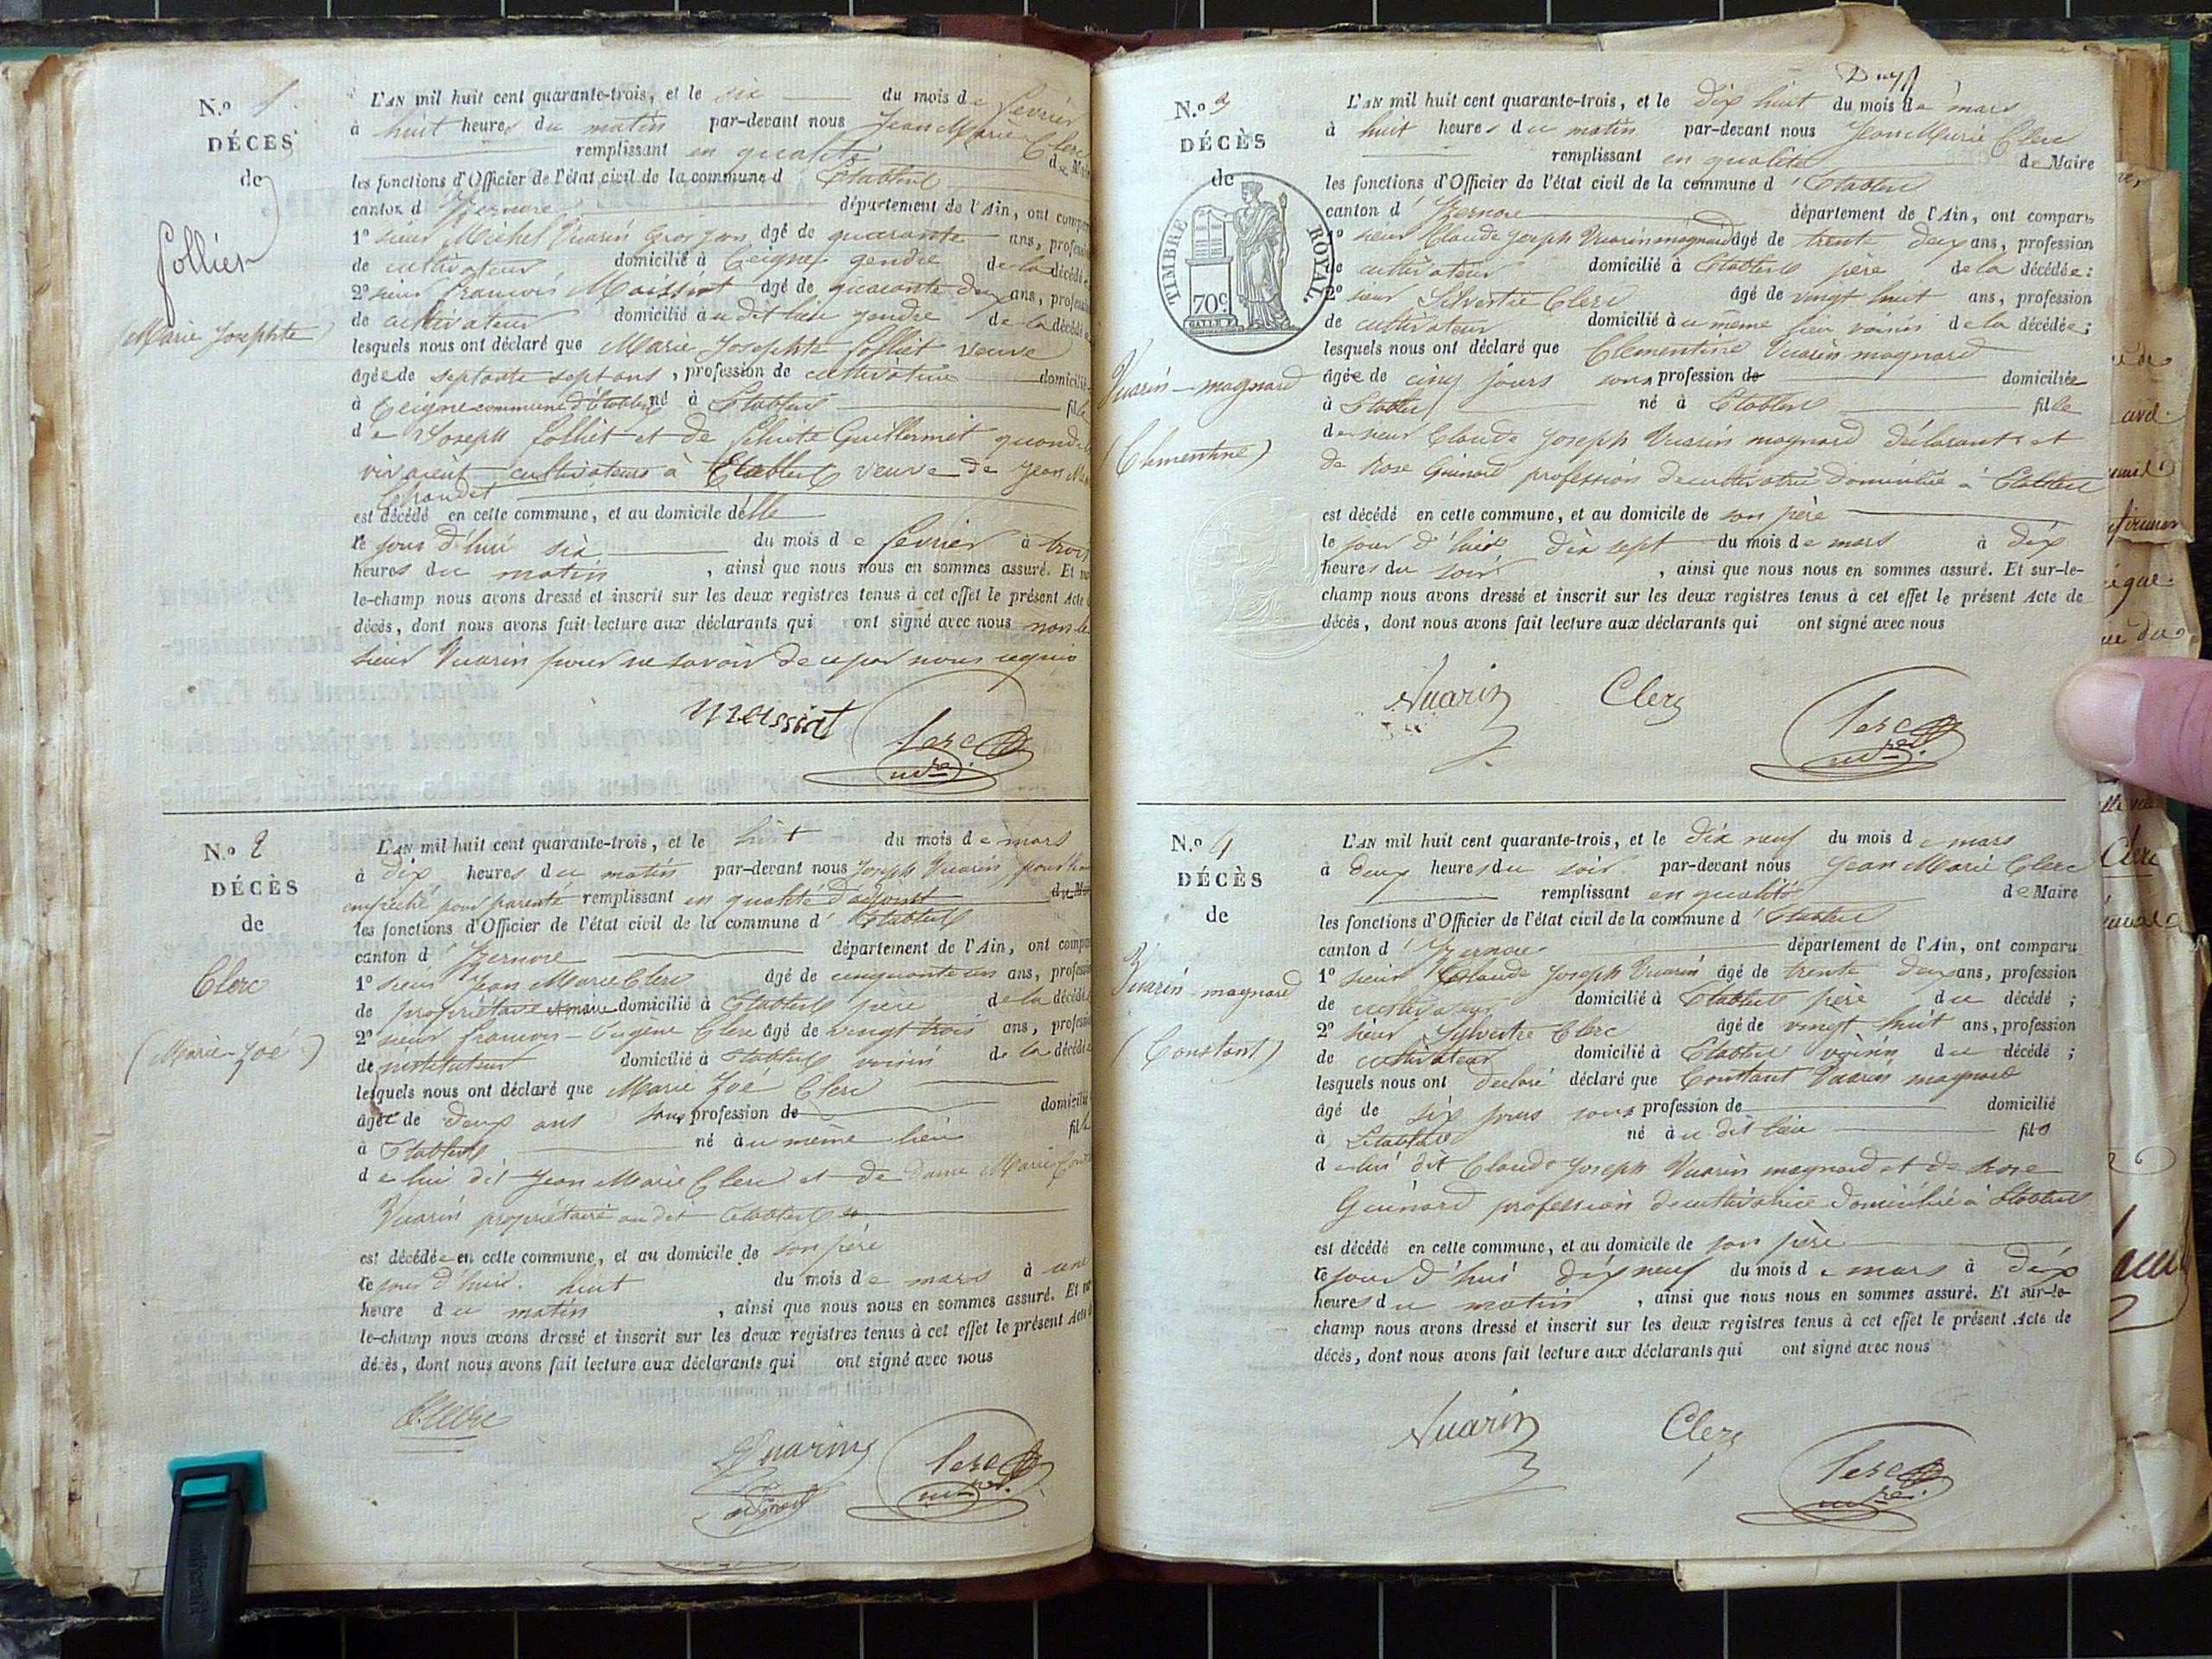 N.o 1
DÉCÈS
de
Folliet
Marie Josephte
L'AN mil huit cent quarante-trois, et le six du mois de fevrier
à huit heures du matin par-devant nous Jean Marie Clerc
remplissant en qualité de Maire
les fonctions d'Officier de l'état civil de la commune d'Etables
canton d'Izernore département de l'Ain, ont comparu
1o sieur Michel Vuarin âgé de quarante ans, profession
de cultivateur domicilié à Ceignes gendre de la décédée
2o sieur francois Moissiat âgé de quarante deux ans, profession
de cultivateur domicilié au dit lieu gendre de la décédée
lesquels nous ont déclaré que Marie Josephte folliet veuve
âgée de septante sept ans, profession de cultivatrice domiciliée
à Ceigne commune d'Etables né à Etables fille
de Joseph folliet et de Guillermet quand ils
vivaient cultivateurs à Etables veuve de Jean
est décédé en cette commune, et au domicile d'elle
ce jour d'hui six du mois de fevrier à trois
heures du matin, ainsi que nous nous en sommes assuré. Et sur
le-champ nous avons dressé et inscrit sur les deux registres tenus à cet effet le présent Acte de
décès, dont nous avons fait lecture aux déclarants qui ont signé avec nous non le
sieur Vuarin pour ne savoir de ce par nous requis
Moissiat Clerc mre
N.o 2
DÉCÈS
de
Clerc
(Marie-Zoé)
L'AN mil huit cent quarante-trois, et le huit du mois de mars
à dix heures du matin par-devant nous Joseph Vuarin pour
empeché pour parenté remplissant en qualité d'adjoint du Maire
les fonctions d'Officier de l'état civil de la commune d'Etables
canton d'Izernore département de l'Ain, ont comparu
1o sieur Jean Marie Clerc âgé de cinquante un ans, profession
de propriétaire et maire domicilié à Etables père de la décédée
2o sieur francois-Eugène Clerc âgé de vingt trois ans, profession
de instituteur domicilié à Etables voisin de la décédée
lesquels nous ont déclaré que Marie Zoé Clerc
âgée de deux ans sans profession de domiciliée
à Etables né au même lieu fille
de lui dit Jean Marie Clerc et de dame Marie
Vuarin propriétaire au dit Etables
est décédée en cette commune, et au domicile de son père
ce jour d'hui huit du mois de mars à une
heure du matin, ainsi que nous nous en sommes assuré. Et sur
le-champ nous avons dressé et inscrit sur les deux registres tenus à cet effet le présent Acte de
décès, dont nous avons fait lecture aux déclarants qui ont signé avec nous
Clerc
Vuarin Clerc mre
adjoint
N.o 3
DÉCÈS
de
TIMBRE ROYAL.
70c
Vuarin-magnard
(Clementine)
L'AN mil huit cent quarante-trois, et le dix huit du mois de mars
à huit heures du matin par-devant nous Jean Marie Clerc
remplissant en qualité de Maire
les fonctions d'Officier de l'état civil de la commune d'Etables
canton d'Izernore département de l'Ain, ont comparu
1o sieur Claude Joseph Vuarin magnard âgé de trente deux ans, profession
de cultivateur domicilié à Etables père de la décédée:
2o sieur Silvestre Clerc âgé de vingt huit ans, profession
de cultivateur domicilié au même lieu voisin de la décédée;
lesquels nous ont déclaré que Clementine Vuarin magnard
âgée de cinq jours sans profession de domiciliée
à Etables né à Etables fille
de sieur Claude Joseph Vuarin magnard déclarant et
de Rose Guinard profession de cultivatrice domiciliée à Etables
est décédé en cette commune, et au domicile de son père
le jour d'hier dix sept du mois de mars à dix
heures du soir, ainsi que nous nous en sommes assuré. Et sur-le-
champ nous avons dressé et inscrit sur les deux registres tenus à cet effet le présent Acte de
décès, dont nous avons fait lecture aux déclarants qui ont signé avec nous
Vuarin Clerc Clerc mre
N.o 4
DÉCÈS
de
Vuarin-magnard
(Constant)
L'AN mil huit cent quarante-trois, et le dix neuf du mois de mars
à deux heures du soir par-devant nous Jean Marie Clerc
remplissant en qualité de Maire
les fonctions d'Officier de l'état civil de la commune d'Etables
canton d'Izernore département de l'Ain, ont comparu
1o sieur Claude Joseph Vuarin âgé de trente deux ans, profession
de cultivateur domicilié à Etables père du décédé;
2o sieur Sylvestre Clerc âgé de vingt huit ans, profession
de cultivateur domicilié à Etables voisin du décédé;
lesquels nous ont declaré déclaré que Constant Vuarin magnard
âgé de six jours sans profession de domicilié
à Etables né au dit lieu fils
de lui dit Claude Joseph Vuarin magnard et de Rose
Guinard profession de cultivatrice domiciliée à Etables
est décédé en cette commune, et au domicile de son père
ce jour d'hui dix neuf du mois de mars à dix
heures du matin, ainsi que nous nous en sommes assuré. Et sur-le-
champ nous avons dressé et inscrit sur les deux registres tenus à cet effet le présent Acte de
décès, dont nous avons fait lecture aux déclarants qui ont signé avec nous
Vuarin Clerc Clerc mre